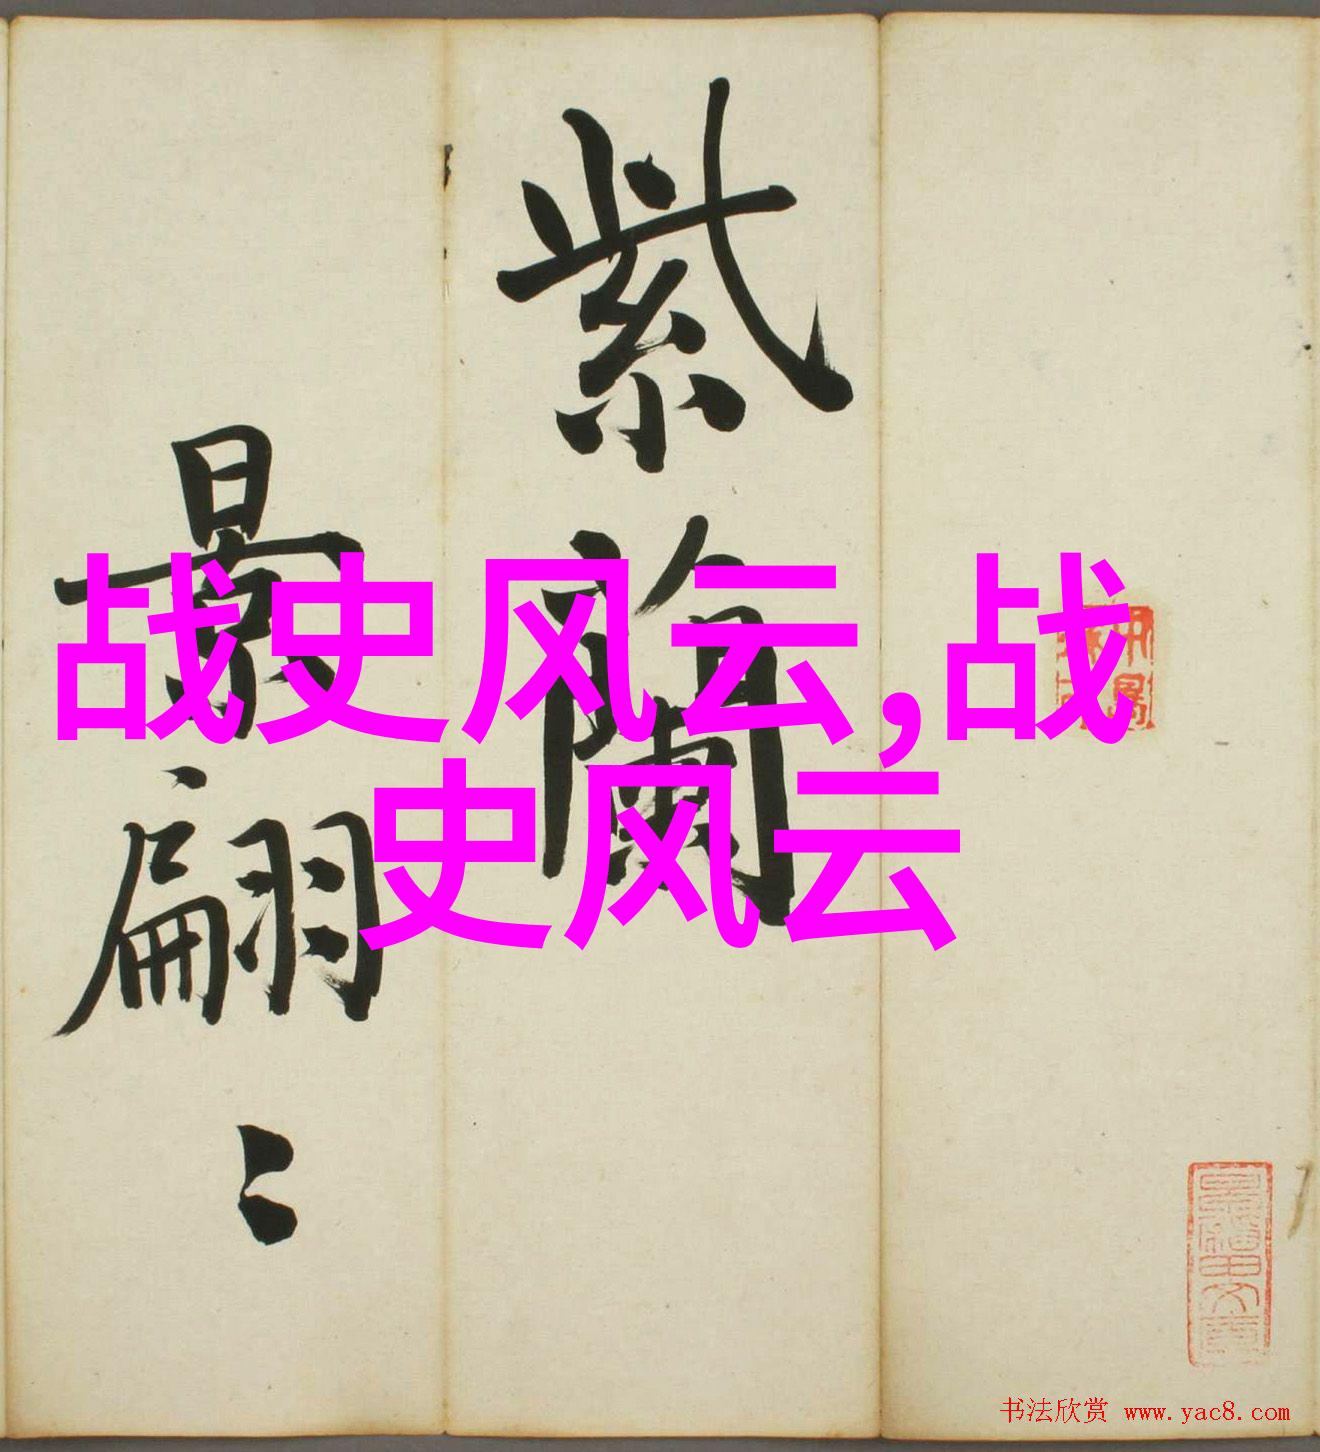 战史风云,战
史风云
紫蘭
翩〻
书法欣赏 www.yac8.com